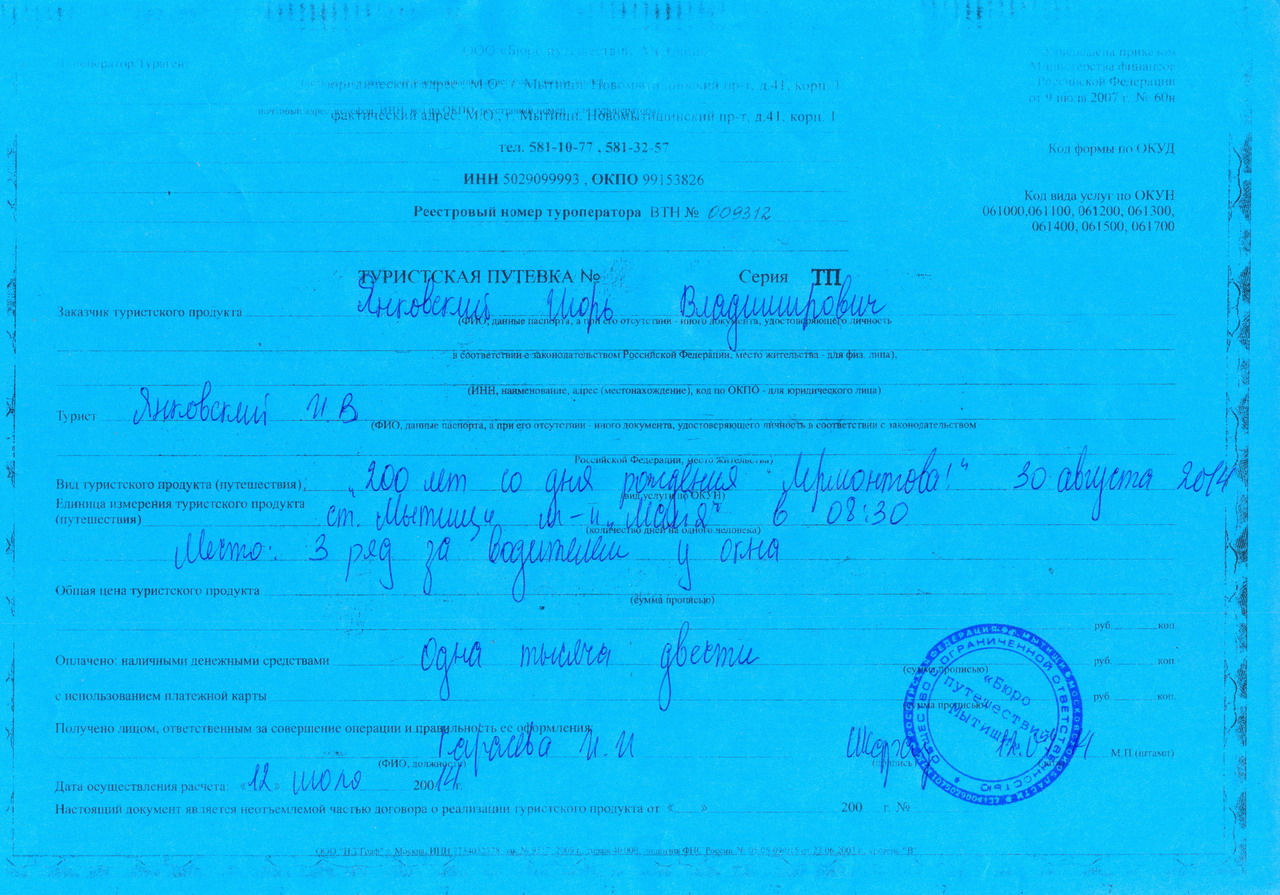 ООО «Бюро путешествий
Туроператор/Турагент
Утверждена приказом
Министерства финансов
Российской Федерации
от 9 июля 2007 г. № 60н
юридический адрес: М.О., г. Мытищи, Новомытищинский пр-т, д.41, корп. 1
фактический адрес: М.О., г. Мытищи, Новомытищинский пр-т, д.41, корп. 1
тел. 581-10-77 , 581-32-57
Код формы по ОКУД
ИНН 5029099993 , ОКПО 99153826
Код вида услуг по ОКУН
061000,061100, 061200, 061300,
061400, 061500, 061700
Реестровый номер туроператора ВТН № 009312
ТУРИСТСКАЯ ПУТЕВКА № Серия ТП
Заказчик туристского продукта Янковский Игорь Владимирович
(ФИО, данные паспорта, а при его отсутствии - иного документа, удостоверяющего личность
в соответствии с законодательством Российской Федерации, место жительства - для физ. лица),
(ИНН, наименование, адрес (местонахождение), код по ОКПО - для юридического лица)
Турист Янковский И.В
(ФИО, данные паспорта, а при его отсутствии - иного документа, удостоверяющего личность в соответствии с законодательством
Российской Федерации, место жительства)
Вид туристского продукта (путешествия) „200 лет со дня рождения Лермонтова!“ 30 августа 2014
(вид услуги по ОКУН)
Единица измерения туристского продукта
(путешествия) ст. Мытищи м-н „Майя“ в 08:30
(количество дней на одного человека)
Место: 3 ряд за водителем у окна
Общая цена туристского продукта
(сумма прописью)
руб. коп.
Оплачено: наличными денежными средствами Одна тысяча двести руб. коп.
(сумма прописью)
с использованием платежной карты руб. коп.
(сумма прописью)
Получено лицом, ответственным за совершение операции и правильность ее оформления
И.И
(ФИО, должность) (подпись) М.П (штамп)
Дата осуществления расчета: «12» июля 2014г.
Настоящий документ является неотъемлемой частью договора о реализации туристского продукта от « » 200 г. №
«Бюро
путешествий
Мытищи»
ОБЩЕСТВО С ОГРАНИЧЕННОЙ ОТВЕТСТВЕННОСТЬЮ